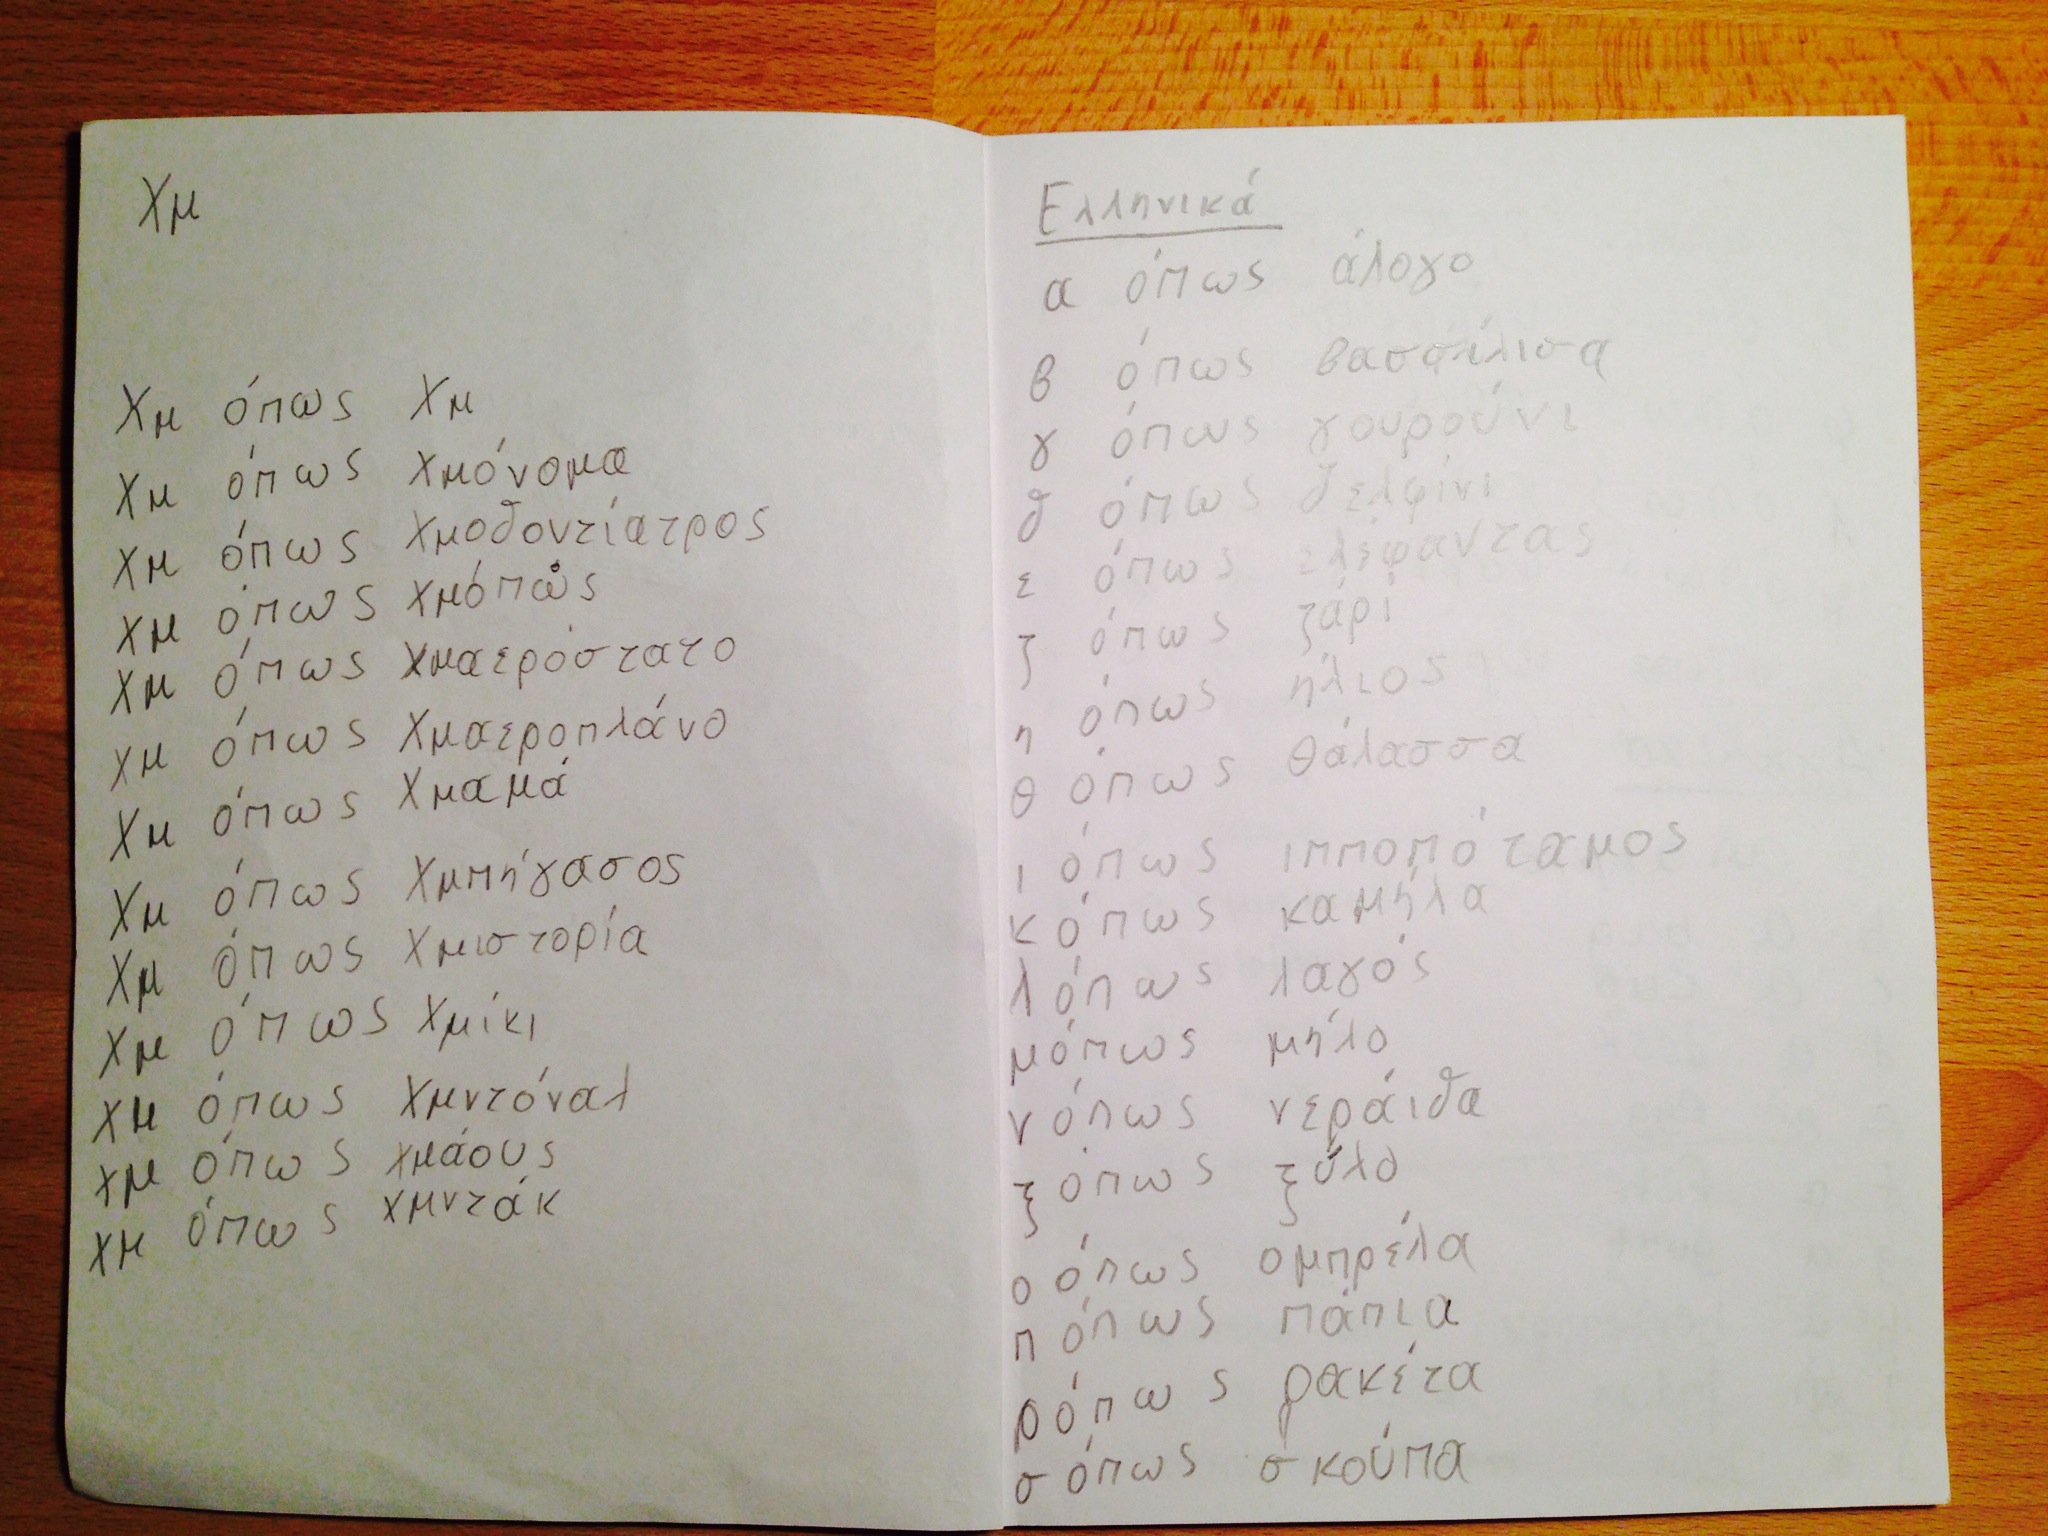 Χμ
Χμ όπως Χμ
Χμ όπως Χμόνομα
Χμ όπως Χμοδοντίατρος
Χμ όπως Χμόπως
Χμ όπως Χμαερόστατο
Χμ όπως Χμαεροπλάνο
Χμ όπως Χμαμά
Χμ όπως Χμπήγασος
Χμ όπως Χμιστορία
Χμ όπως Χμίκι
Χμ όπως Χμντόναλ
Χμ όπως Χμάους
Χμ όπως Χμντάκ
Ελληνικά
α όπως άλογο
β όπως
γ όπως γουρούνι
δ όπως δελφίνι
ε όπως ελέφαντας
ζ όπως ζάρι
η όπως ήλιος
θ όπως θάλασσα
ι όπως ιπποπόταμος
κ όπως καμήλα
λ όπως λαγός
μ όπως μήλο
ν όπως νεράιδα
ξ όπως ξύλο
ο όπως ομπρέλα
π όπως πάπια
ρ όπως ρακέτα
σ όπως σκούπα